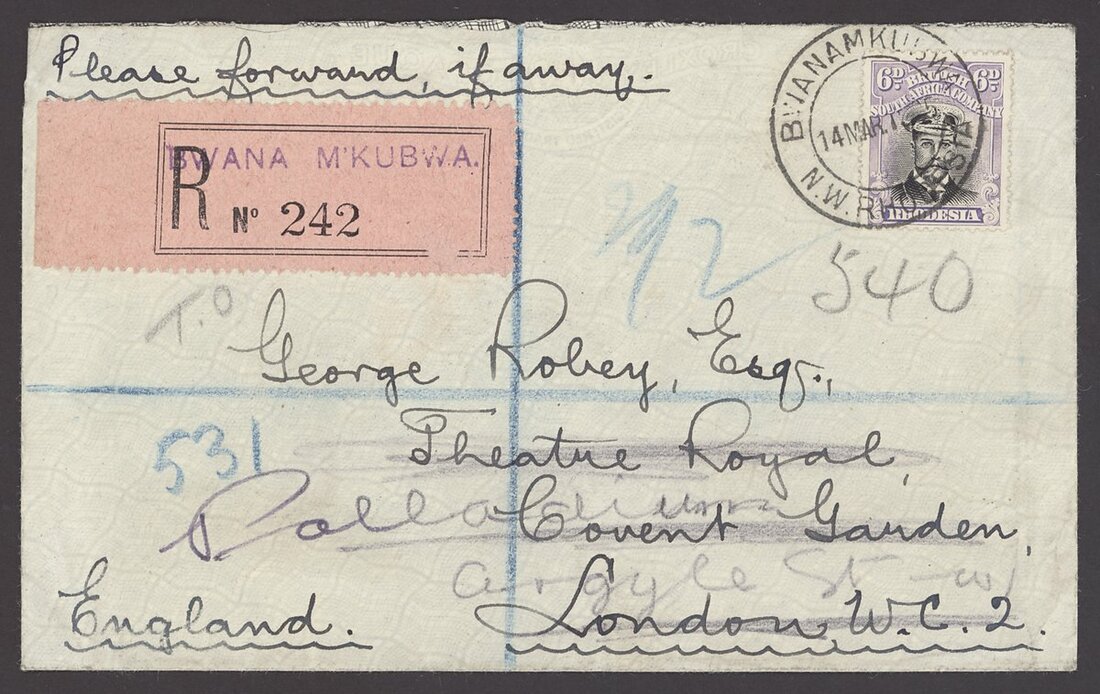 Please forward, if away.
BWANA M'KUBWA.
R Nº 242
BWANAMKUBWA
14 MAR
N.W. RHODESIA
6D BRITISH 6D
SOUTH AFRICA COMPANY
RHODESIA
540
T.O
George Robey, Esq.,
531
Theatre Royal,
Palladium
Covent Garden,
Argyle St W1
England.
London, W.C.2.